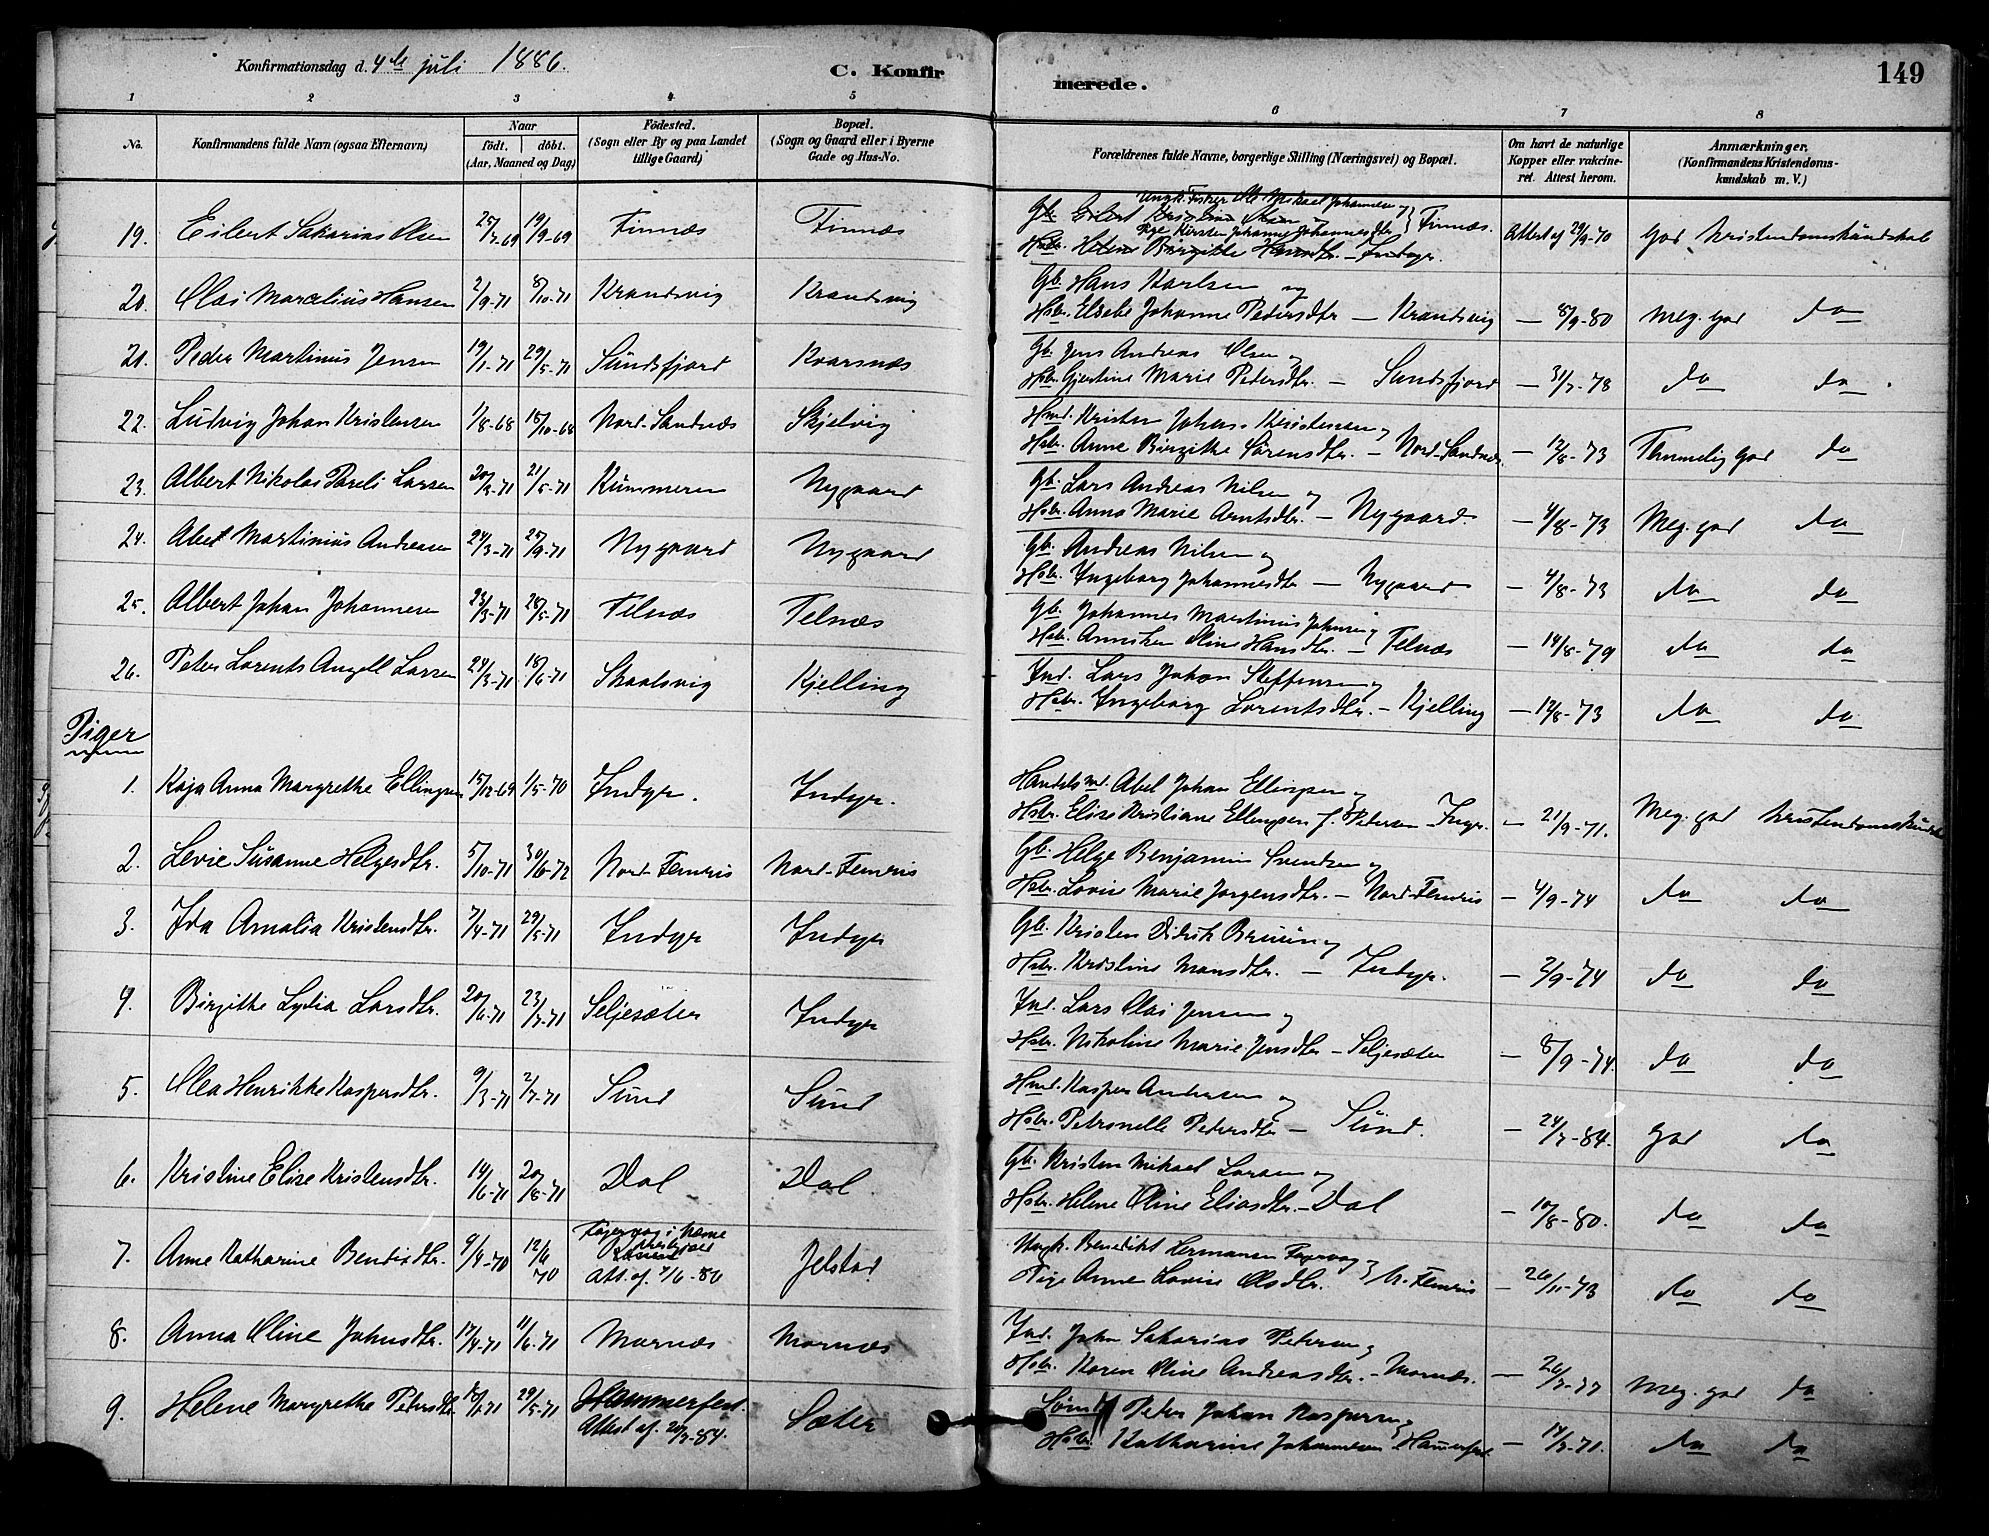 Konfirmationsdag d. 4de juli 1886.
C. Konfirmerede.
149
1 2 3 4 5 6 7 8
No.
Konfirmandens fulde Navn (ogsaa Efternavn)
Naar
födt. döbt.
(Aar, Maaned og Dag)
Födested.
(Sogn eller By og paa Landet
tillige Gaard)
Bopæl.
(Sogn og Gaard eller i Byerne
Gade og Hus-No.
Forældrenes fulde Navne, borgerlige Stilling (Næringsvei) og Bopæl.
Om havt de naturlige
Kopper eller vakcine-
ret. Attest herom.
Anmærkninger,
(Konfirmandens Kristendoms-
kundskab m. V.)
19. Eilert Sakarias Olsen 25/7-69 19/9-69 Finnæs Finnæs
Ungk. Fisker Ole Mikael Johannesen og
Pige Kirsten Johanna Johannesdtr. } Finnæs.
Hstr. Helene Birgitte Hansdtr. – Indyr.
Attest af 29/9-70 god Kristendomskundskab
20. Olai Marcelius Hansen 2/9-71 8/10-71 Krandsvig Krandsvig
Gb. Hans Karlsen og
Hstr. Elsebe Johanne Pedersdtr – Krandsvig – 8/9-80 Meg. god do
21. Peder Martinus Jensen 19/1-71 29/5-71 Sundsfjord Kvarsnæs
Gb. Jens Andreas Olsen og
Hstr. Gjertine Marie Pedersdtr. – Sundsfjord – 31/7-73 do do
22. Ludvig Johan Kristensen 1/8-68 18/10-68 Nord-Sandnæs Skjelvig
Hmd. Kristen Johan Kristensen og
Hstr. Anne Birgitte Sørensdtr. – Nord-Sandnæs – 12/8-73 Temmelig god do
23. Albert Nikolai Pareli Larsen 20/3-71 21/5-71 Kummeren Nygaard
Gb. Lars Andreas Nilsen og
Hstr. Anna Marie Arntsdtr. – Nygaard. – 4/8-73 Meg. god do
24. Abel Martinius Andreasen 24/3-71 27/9-71 Nygaard Nygaard
Gb. Andreas Nilsen og
Hstr. Ingeborg Johannesdtr – Nygaard – 4/8-73 do do
25. Albert Johan Johannesen 23/3-71 28/5-71 Felnæs Felnæs
Gb. Johannes Martinus Johnsen og
Hstr. Anniken Oline Hansdtr. – Felnæs – 14/8-79 do do
26. Peter Lorents Angell Larsen 24/3-71 18/6-71 Skaalsvig Kjelling
Ind. Lars Johan Steffensen og
Hstr. Ingeborg Lorentsdtr. – Kjelling – 12/8-73 do do
Piger
1. Kaja Anna Margrethe Ellingsen 15/12-69 1/5-70 Indyr. Indyr.
Handelsmd. Abel Johan Ellingsen og
Hstr. Elise Kristiane Ellingsen f. Petersen – Inyr. – 21/9-71. Meg. god Kristendomskundsk
2. Levie Susanne Helgesdtr. 5/10-71 30/6-72 Nord-Femris Nord-Femris
Gb. Helge Benjamin Svendsen og
Hstr. Lovise Marie Jørgensdtr. – Nord-Femris – 4/9-74 do do
3. Ida Amalia Kristensdtr. 7/4-71 29/5-71 Indyr Indyr
Gb. Kristen Didrik Bruun og
Hstr. Kristine Monsdtr. – Indyr. – 2/9-74 do do
4. Birgithe Lydia Larsdtr. 20/6-71 23/7-71 Seljesæter Indyr
Ind. Lars Olai Jensen og
Hstr. Nikoline Marie Jensdtr – Seljesæter – 8/9-74. do do
5. Olea Henrikke Kaspersdtr. 9/3-71 2/7-71 Sund Sund
Hmd. Kasper Andersen og
Hstr. Petronelle Pedersdtr – Sund. – 24/7-84. god do
6. Kristine Elise Kristensdtr. 14/6-71 20/8-71 Dal Dal
Gb. Kristen Mikael Larsen og
Hstr. Helene Oline Eliasdtr. – Dal – 10/8-80. do do
7. Anne Katharine Bendixdtr. 9/4-70 12/6 70
Att. af 4/6-80
Jelstad
Ungk. Benedikt Hermansen og
Pige Anne Lovise Olsdtr. } N. Femris – 26/11-73 do do
8. Anna Oline Johnsdtr. 17/4-71 11/6-71 Mornæs Mornæs
Ind. John Sakarias Petersen og
Hstr. Karen Oline Andreasdtr. – Mornæs. – 26/7-77 Meg. god do
9. Helene Margrethe Petersdtr 29/5-71 Hammerfest.
Attest af. 20/7-84.
Sæter
Peter Johan Kaspersen og
Hstr. Katharine Johannesen Hammerfest – 14/7-71. do do